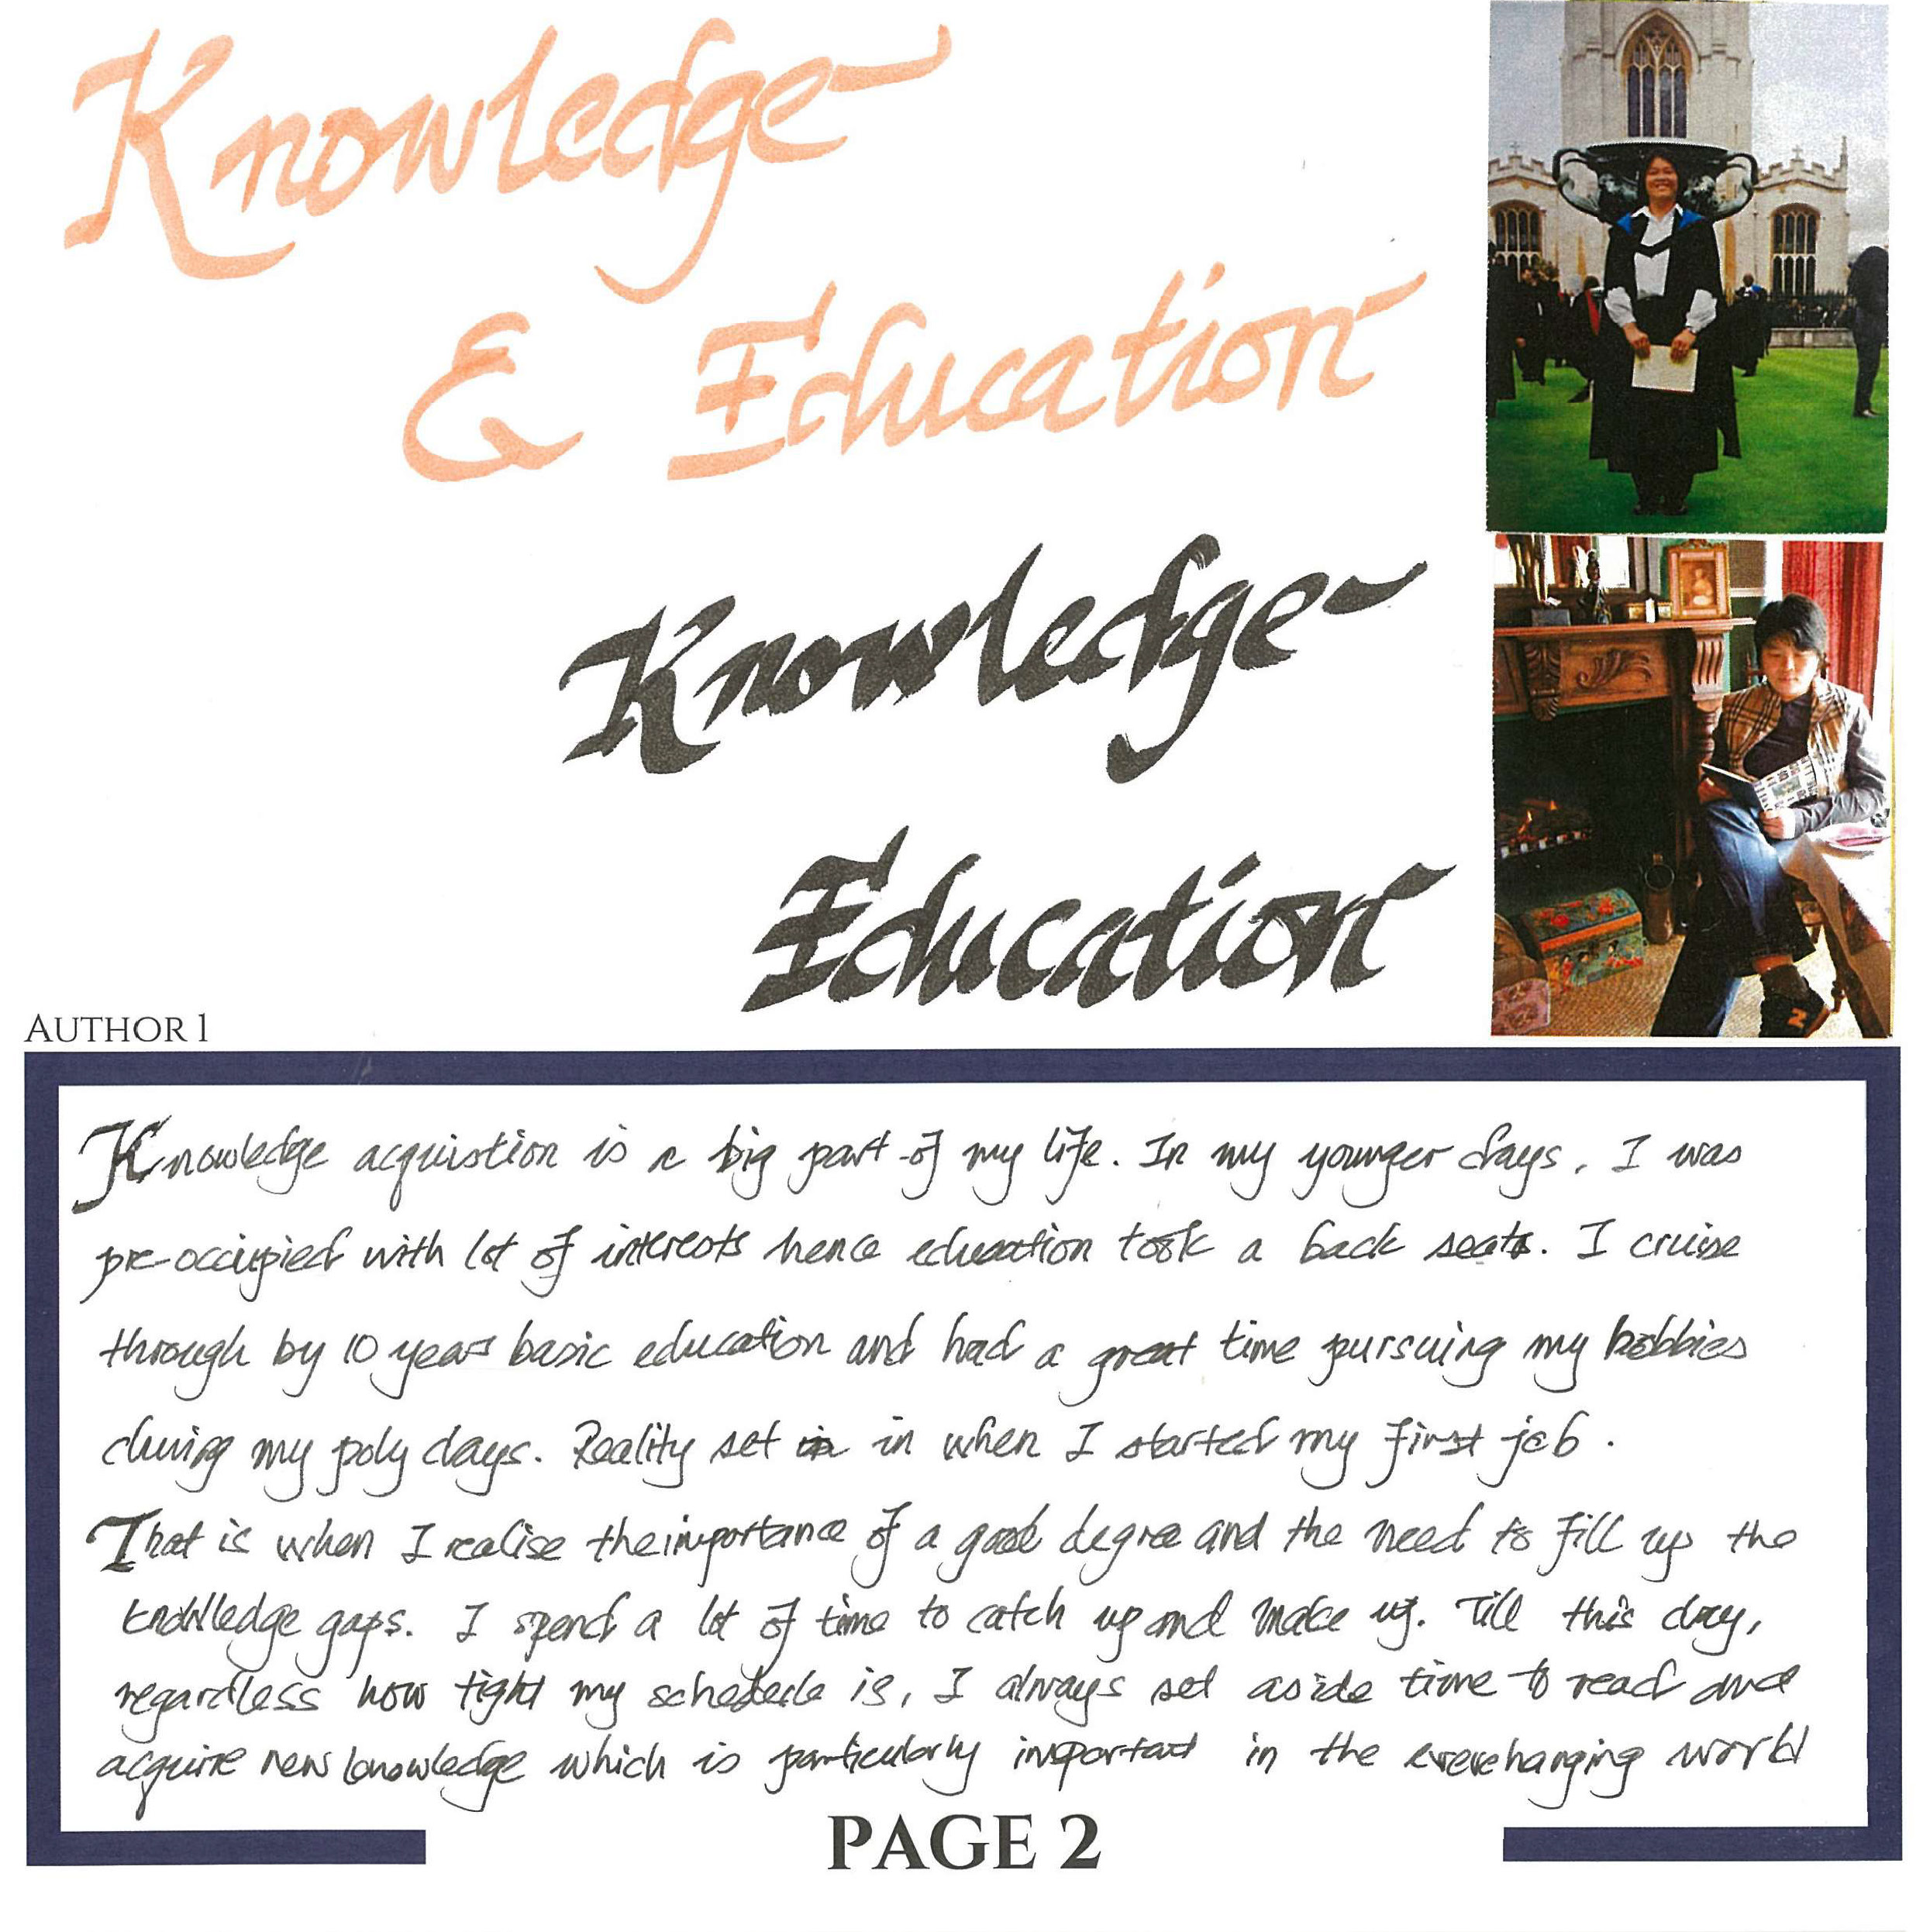 Knowledge
& Education
Knowledge
Education
AUTHOR 1
Knowledge acquistion is a big part of my life. In my younger days, I was
pre-occupied with lot of interests hence education took a back seat. I cruise
through by 10 years basic education and had a great time pursuing my hobbies
during my poly days. Reality set in in when I started my first job.
That is when I realise the importance of a good degree and the need to fill up the
knowledge gaps. I spend a lot of time to catch up and make up. Till this day,
regardless how tight my schedule is, I always set aside time to read and
acquire new knowledge which is particularly important in the everchanging world
PAGE 2